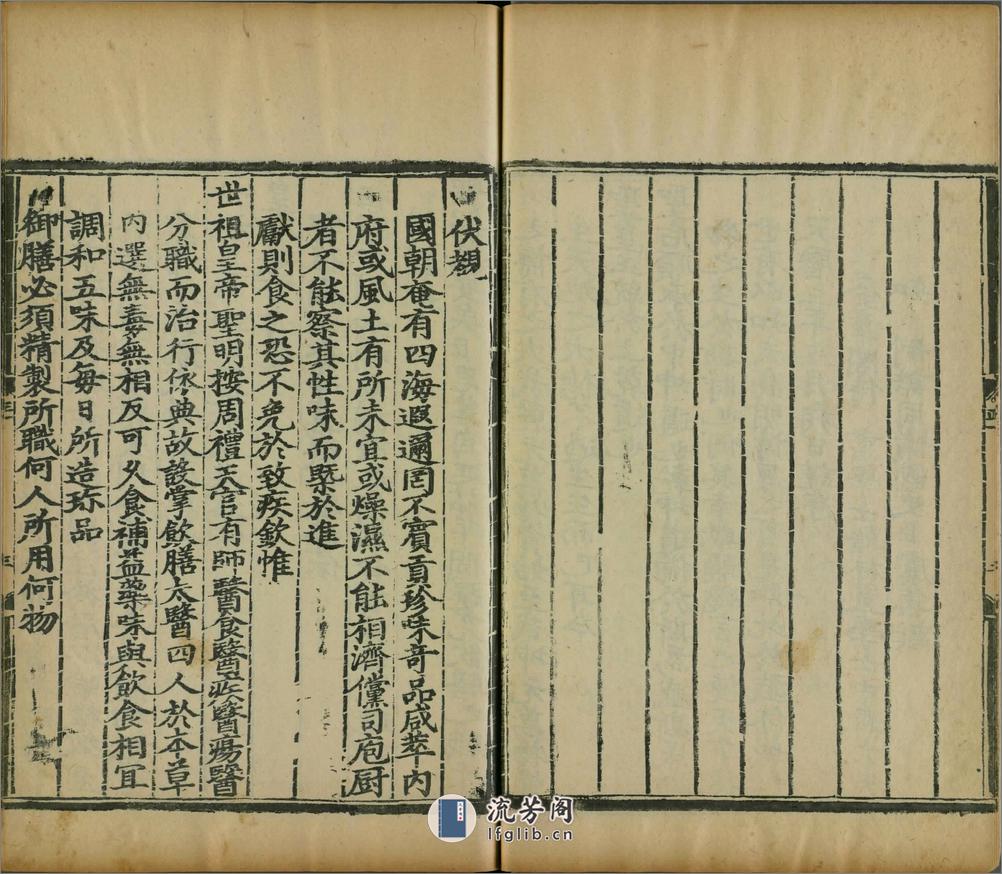 伏覩
國朝奄有四海遐邇罔不賓貢珍味奇品咸萃内
府或風土有所未宜或燥濕不能相濟儻司庖厨
者不能察其性味而槩於進
獻則食之恐不免於致疾欽惟
世祖皇帝聖明按周禮天官有師醫食醫疾醫瘍醫
分職而治行依典故設掌飲膳太醫四人於本草
内選無毒無相反可久食補益藥味與飲食相宜
調和五味及每日所造珎品
御膳必須精製所職何人所用何物
流芳阁
lfglib.cn